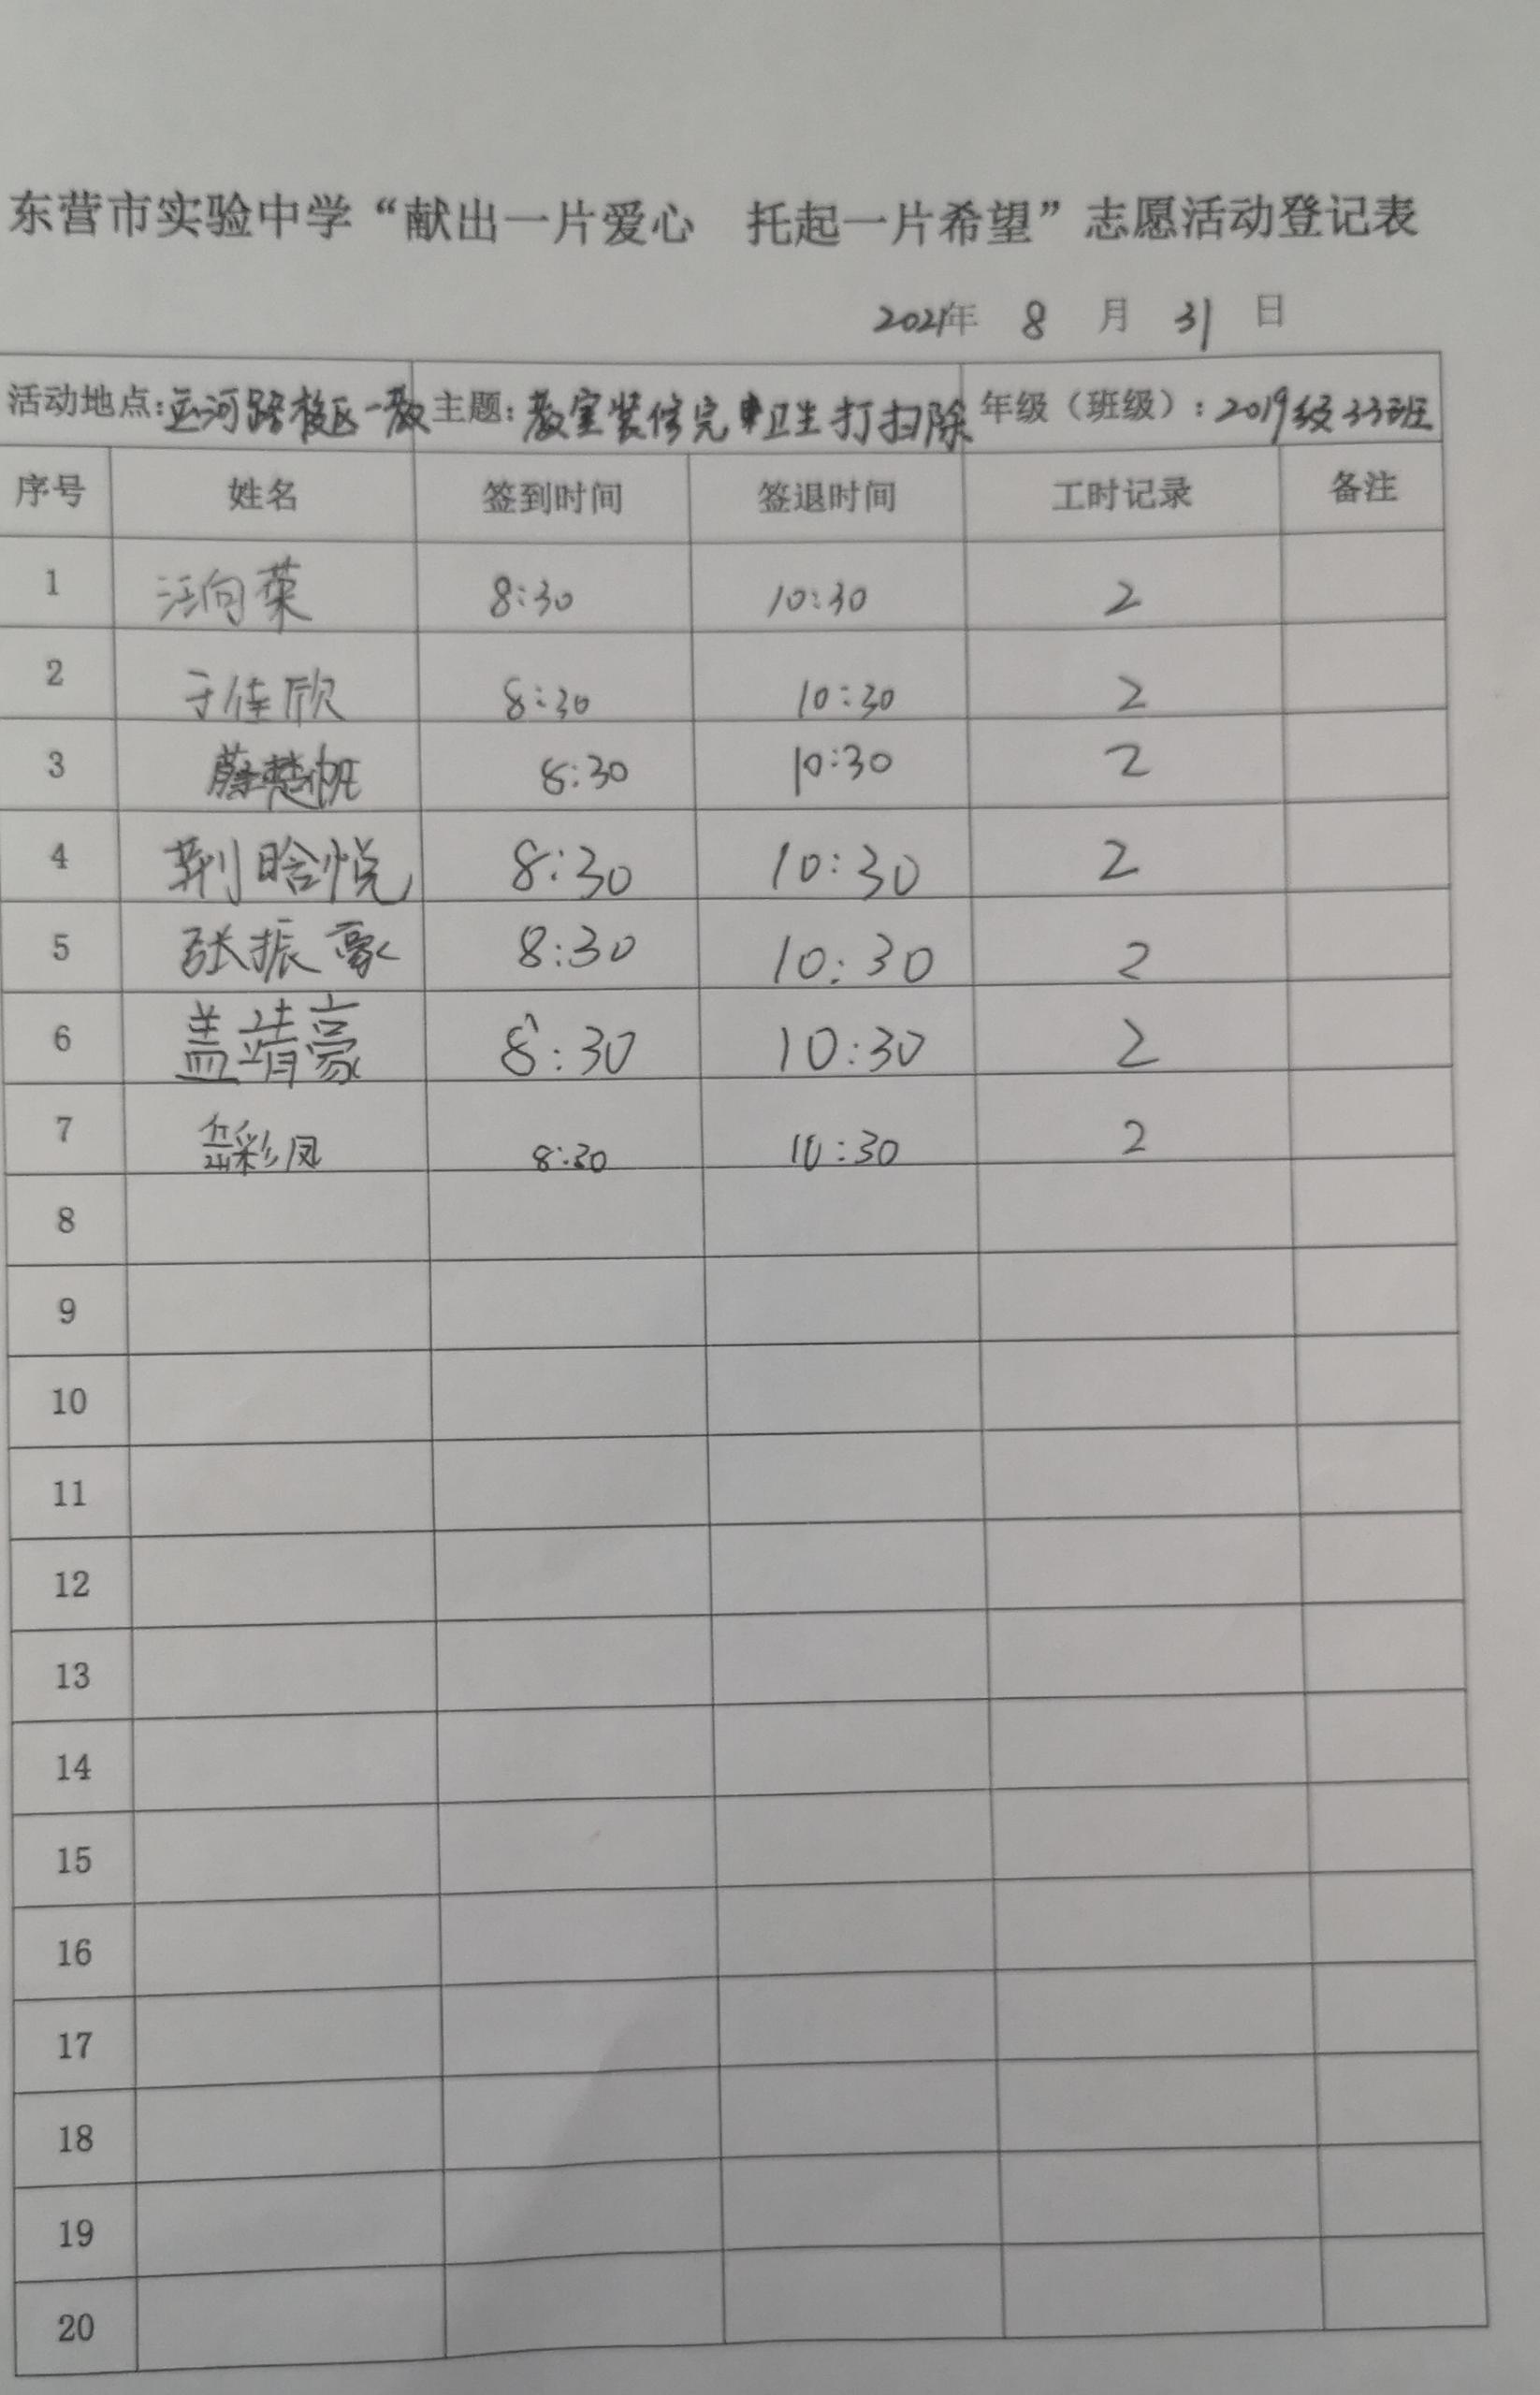 东营市实验中学“献出一片爱心 托起一片希望”志愿活动登记表
2021年 8 月 31 日
活动地点:运河路校区一教 主题:教室装修完卫生打扫除 年级（班级）:2019级33班
序号 姓名 签到时间 签退时间 工时记录 备注
1 汪向荣 8:30 10:30 2
2 于佳欣 8:30 10:30 2
3 薛楚帆 8:30 10:30 2
4 荆晗悦 8:30 10:30 2
5 张振豪 8:30 10:30 2
6 盖靖豪 8:30 10:30 2
7 彩凤 8:30 10:30 2
8
9
10
11
12
13
14
15
16
17
18
19
20